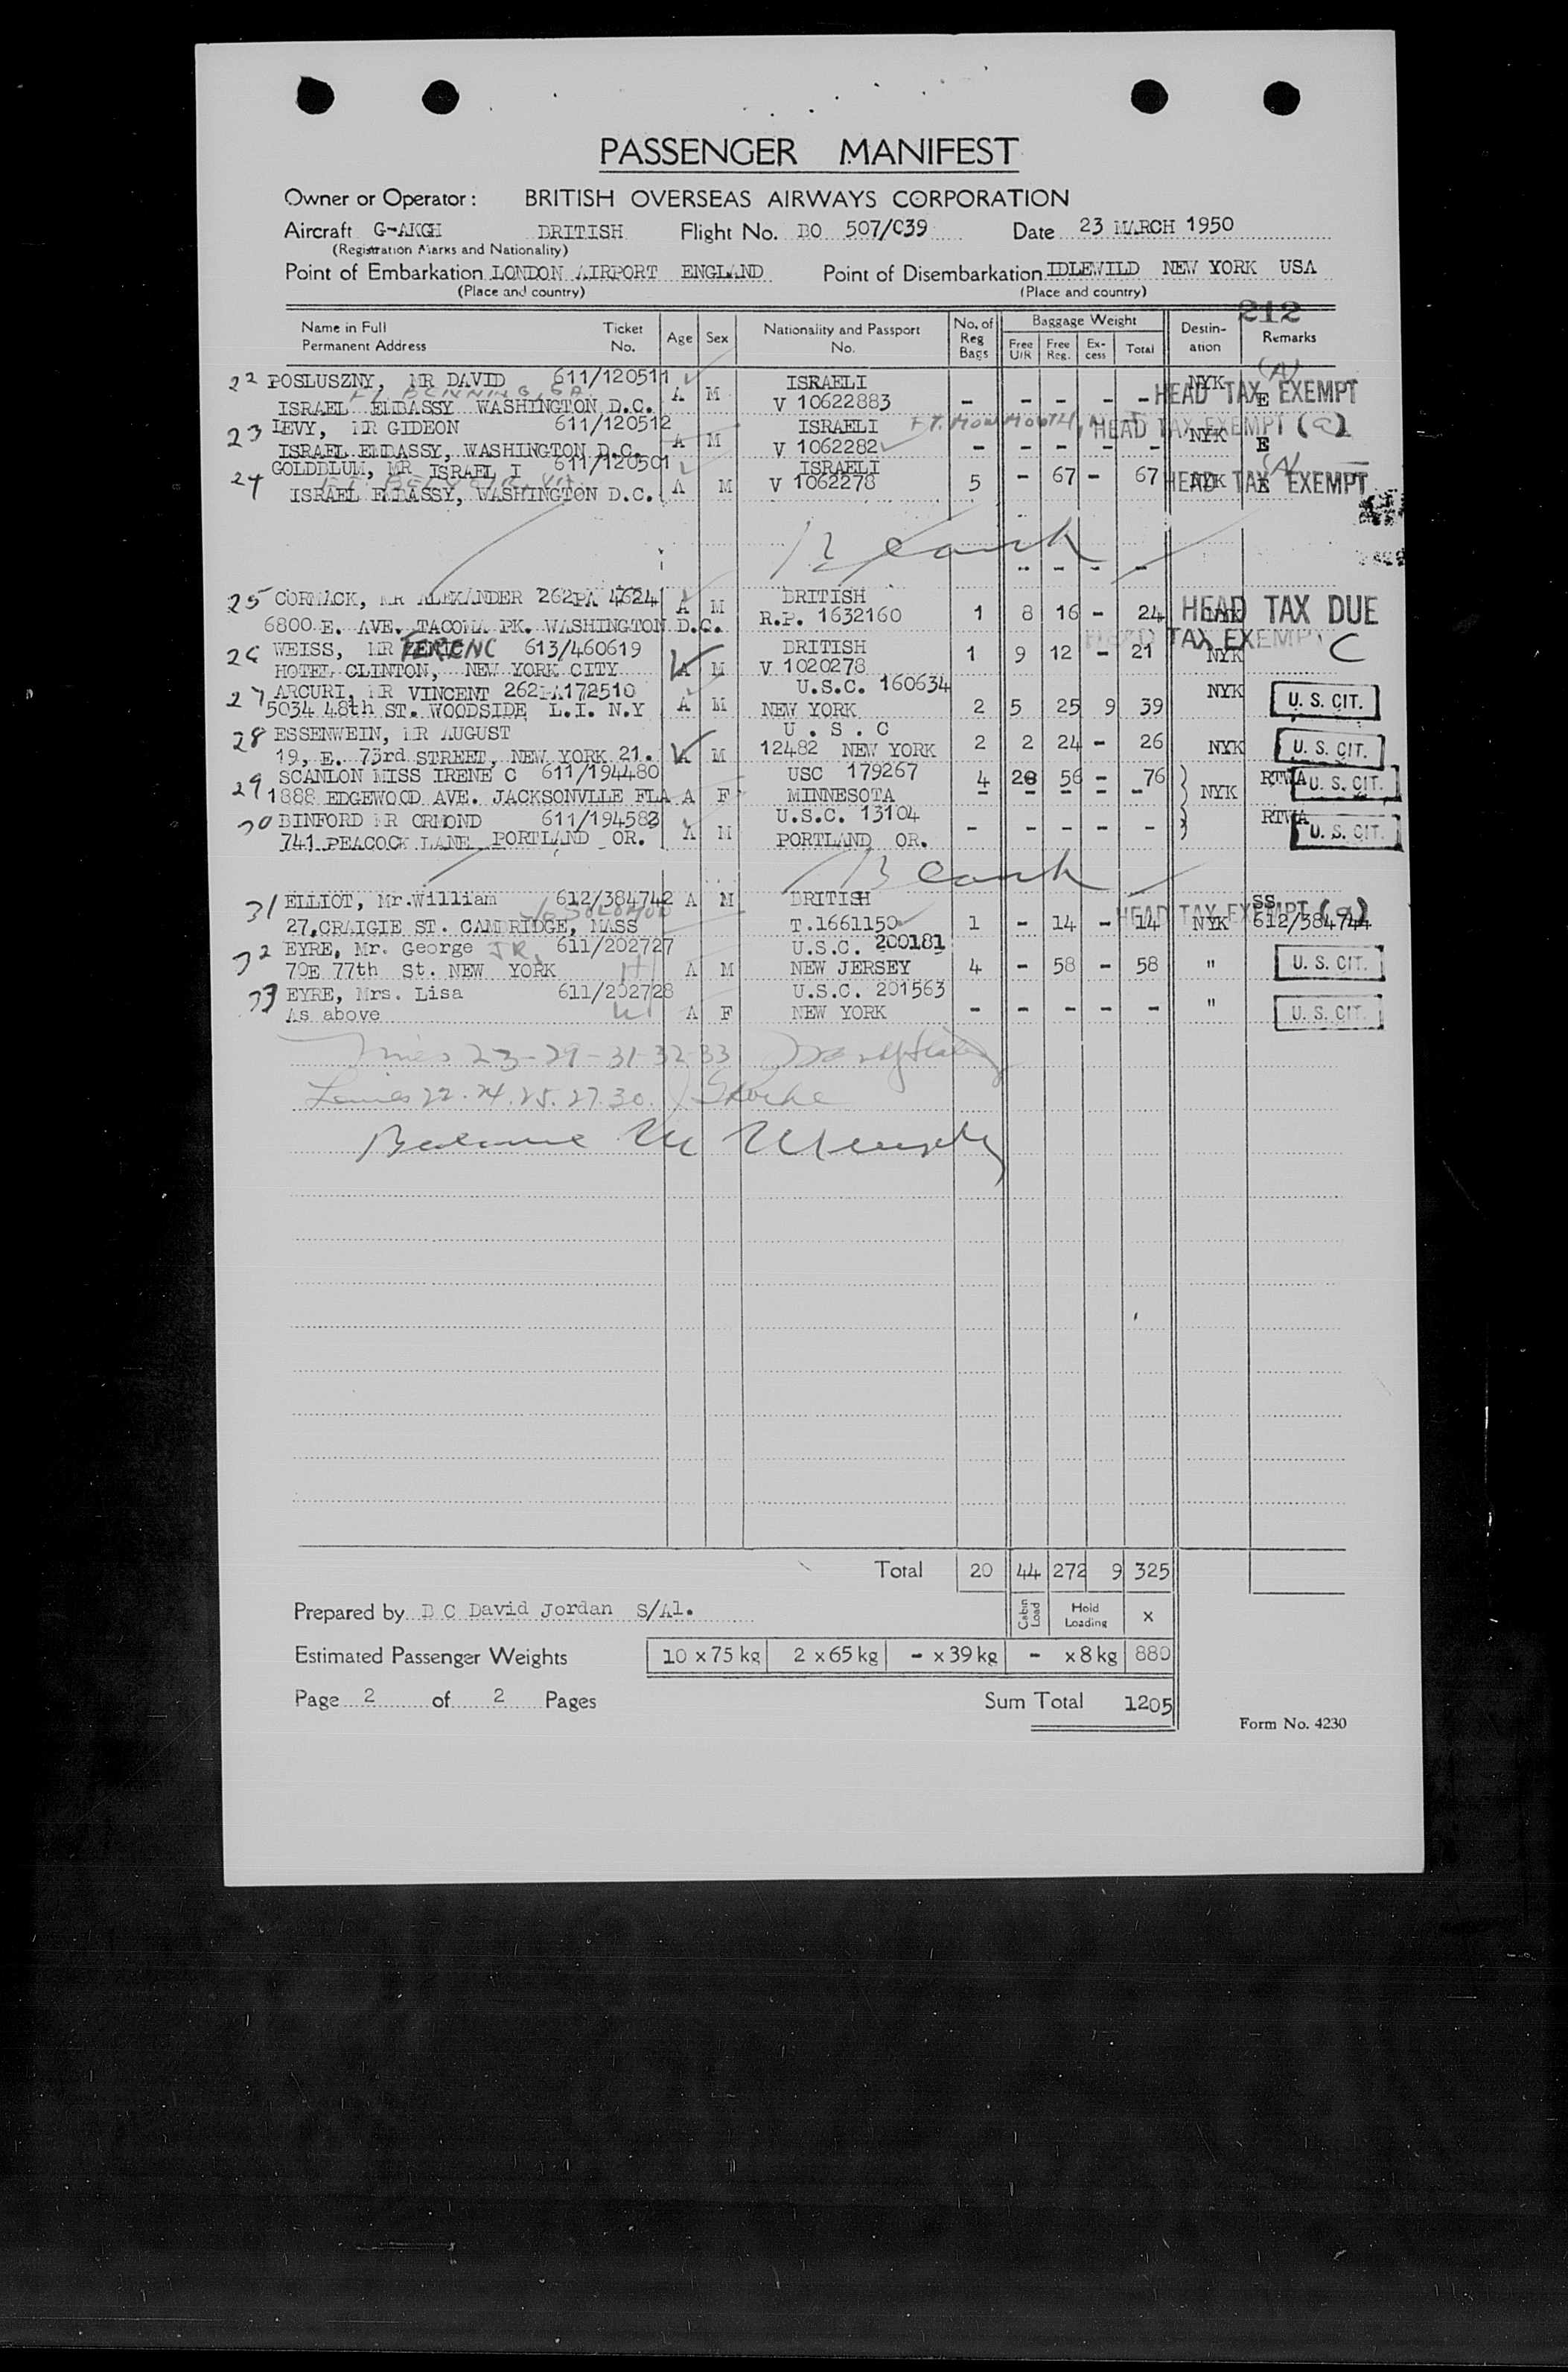 PASSENGER MANIFEST
Owner or Operator: BRITISH OVERSEAS AIRWAYS CORPORATION
Aircraft G-AKGH BRITISH Flight No. BO 507/039 Date 23 MARCH 1950
(Registration Marks and Nationality)
Point of Embarkation LONDON AIRPORT ENGLAND Point of Disembarkation IDLEWILD NEW YORK USA
(Place and country) (Place and country)
212
Name in Full Permanent Address Ticket No. Age Sex Nationality and Passport No. No. of Reg Bags Baggage Weight Free U/R Free Reg. Ex-cess Total Destin-ation Remarks
22 POSLUSZNY, MR DAVID 611/120511 A M ISRAELI - - - - - NYK (A) HEAD TAX EXEMPT
FT. BENNING, GA.
ISRAEL EMBASSY WASHINGTON D.C. V 10622883 E
23 LEVY, MR GIDEON 611/120512 A M ISRAELI FT. MONMOUTH, N HEAD TAX EXEMPT (a)
ISRAEL EMBASSY, WASHINGTON D.C. V 1062282 - - - - - NYK E
24 GOLDBLUM, MR ISRAEL I 611/120501 A M ISRAELI 5 - 67 - 67 NYK (A) HEAD TAX EXEMPT
FT. BELVOIR, VA.
ISRAEL EMBASSY, WASHINGTON D.C. V 1062278 E
Blank
- - - -
25 CORMACK, MR ALEXANDER 262PA 4624 A M BRITISH
6800 E. AVE. TACOMA PK. WASHINGTON D.C. R.P. 1632160 1 8 16 - 24 NYK HEAD TAX DUE
26 WEISS, MR FERENC 613/460619 A M BRITISH 1 9 12 - 21 NYK HEAD TAX EXEMPT C
HOTEL CLINTON, NEW YORK CITY V 1020278
27 ARCURI, MR VINCENT 262PA172510 A M U.S.C. 160634 NYK
5034 48th ST. WOODSIDE L.I. N.Y NEW YORK 2 5 25 9 39 U. S. CIT.
28 ESSENWEIN, MR AUGUST A M U . S . C
19, E. 73rd STREET, NEW YORK 21. 12482 NEW YORK 2 2 24 - 26 NYK U. S. CIT.
29 SCANLON MISS IRENE C 611/194480 USC 179267 4 20 56 - 76 RTWA U. S. CIT.
1888 EDGEWOOD AVE. JACKSONVLLE FLA A F MINNESOTA - - - - - NYK
30 BINFORD MR ORMOND 611/194583 A M U.S.C. 13104 RTWA
741 PEACOCK LANE PORTLAND OR. PORTLAND OR. - - - - - U. S. CIT.
Blank
31 ELLIOT, Mr.William 612/384742 A M BRITISH SS
27,CRAIGIE ST. CAMBRIDGE, MASS T.1661150 1 - 14 - 14 NYK 612/384744 HEAD TAX EXEMPT (a)
32 EYRE, Mr. George JR. 611/202727 U.S.C. 200181
70E 77th St. NEW YORK A M NEW JERSEY 4 - 58 - 58 " U. S. CIT.
33 EYRE, Mrs. Lisa 611/202728 U.S.C. 201563
As above A F NEW YORK - - - - - " U. S. CIT.
Lines 23-29-31-32-33
Lines 22. 24. 25. 27. 30.
Balance
Total 20 44 272 9 325
Prepared by D C David Jordan S/Al. Cabin Load Hold Loading X
Estimated Passenger Weights 10 x 75 kg 2 x 65 kg - x 39 kg - x 8 kg 880
Page 2 of 2 Pages Sum Total 1205
Form No. 4230